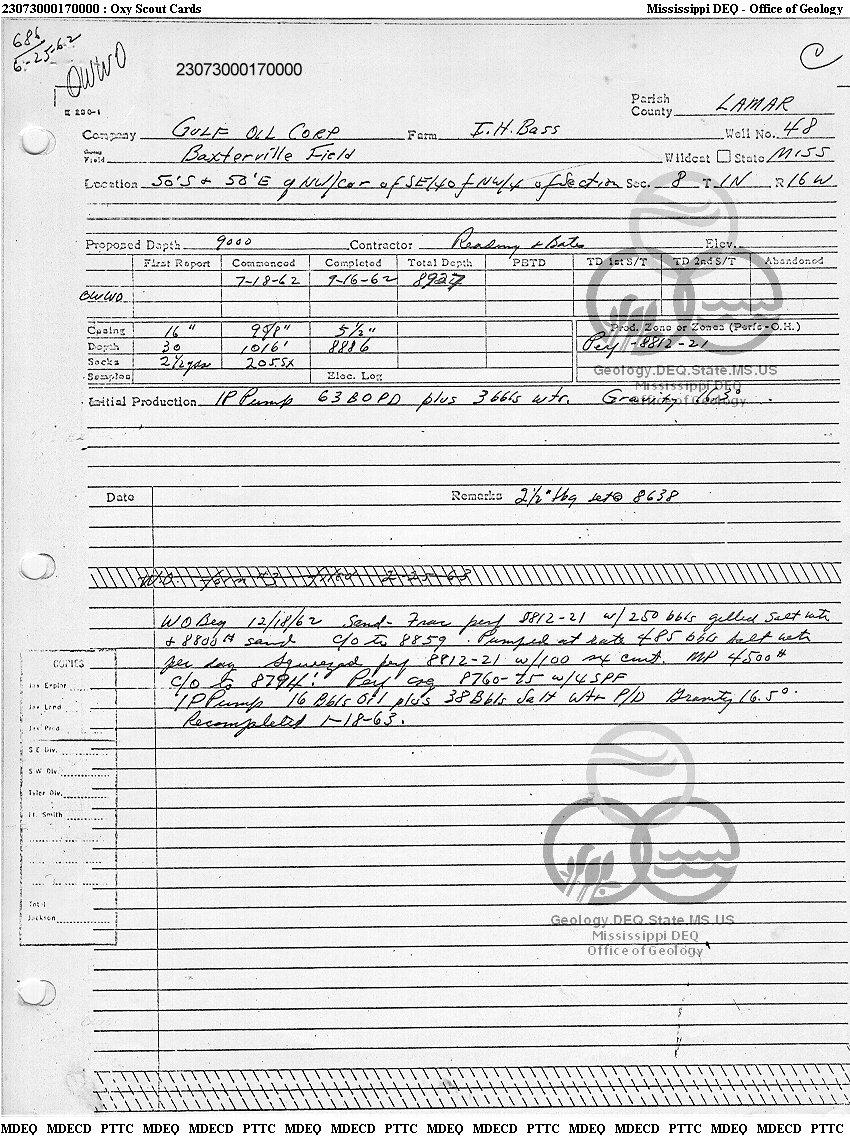 23073000170000 : Oxy Scout Cards Mississippi DEQ - Office of Geology
686
6-25-62
OWWO
23073000170000
C
Parish
County LAMAR
Company GULF OIL CORP Farm I.H. Bass Well No. 48
Field Baxterville Field Wildcat State MISS
Location 50'S + 50'E of NW/cor of SE/4 of NW/4 of Section Sec. 8 T 1N R 16W
Proposed Depth 9000 Contractor Reading & Bates Elev.
First Report Commenced Completed Total Depth PBTD TD 1st S/T TD 2nd S/T Abandoned
7-18-62 9-16-62 8927
OWWO
Casing 16" 9 5/8" 5 1/2" Prod. Zone or Zones (Perfs-O.H.)
Depth 30 1016' 8886 Perf - 8812-21
Sacks 2 1/2 yds 205 SX
Samples Elec. Log
Geology.DEQ.State.MS.US
Mississippi DEQ
Office of Geology
Initial Production IP Pump 63 BOPD plus 3 bbls wtr. Gravity 16.3°
Date Remarks 2 1/2" tbg set @ 8638
W.O. form #3 filed 2-25-63
WO Beg 12/18/62 Sand-Frac perf 8812-21 w/250 bbls gelled salt wtr
+ 8800# sand C/O to 8859. Pumped at rate 485 bbls salt wtr
per day Squeezed perf 8812-21 w/100 sx cmt. MP 4500#
C/O to 8794'. Perf csg 8760-75 w/4SPF
IP Pump 16 Bbls Oil plus 38 Bbls Salt Wtr P/D Gravity 16.5°.
Recompleted 1-18-63.
COPIES
Jax Explor
Jax Land
Jax Prod
S E Div.
S W Div
Tyler Div.
Lt. Smith
Total
Jackson
Geology.DEQ.State.MS.US
Mississippi DEQ
Office of Geology
MDEQ MDECD PTTC MDEQ MDECD PTTC MDEQ MDECD PTTC MDEQ MDECD PTTC MDEQ MDECD PTTC MDEQ MDECD PTTC